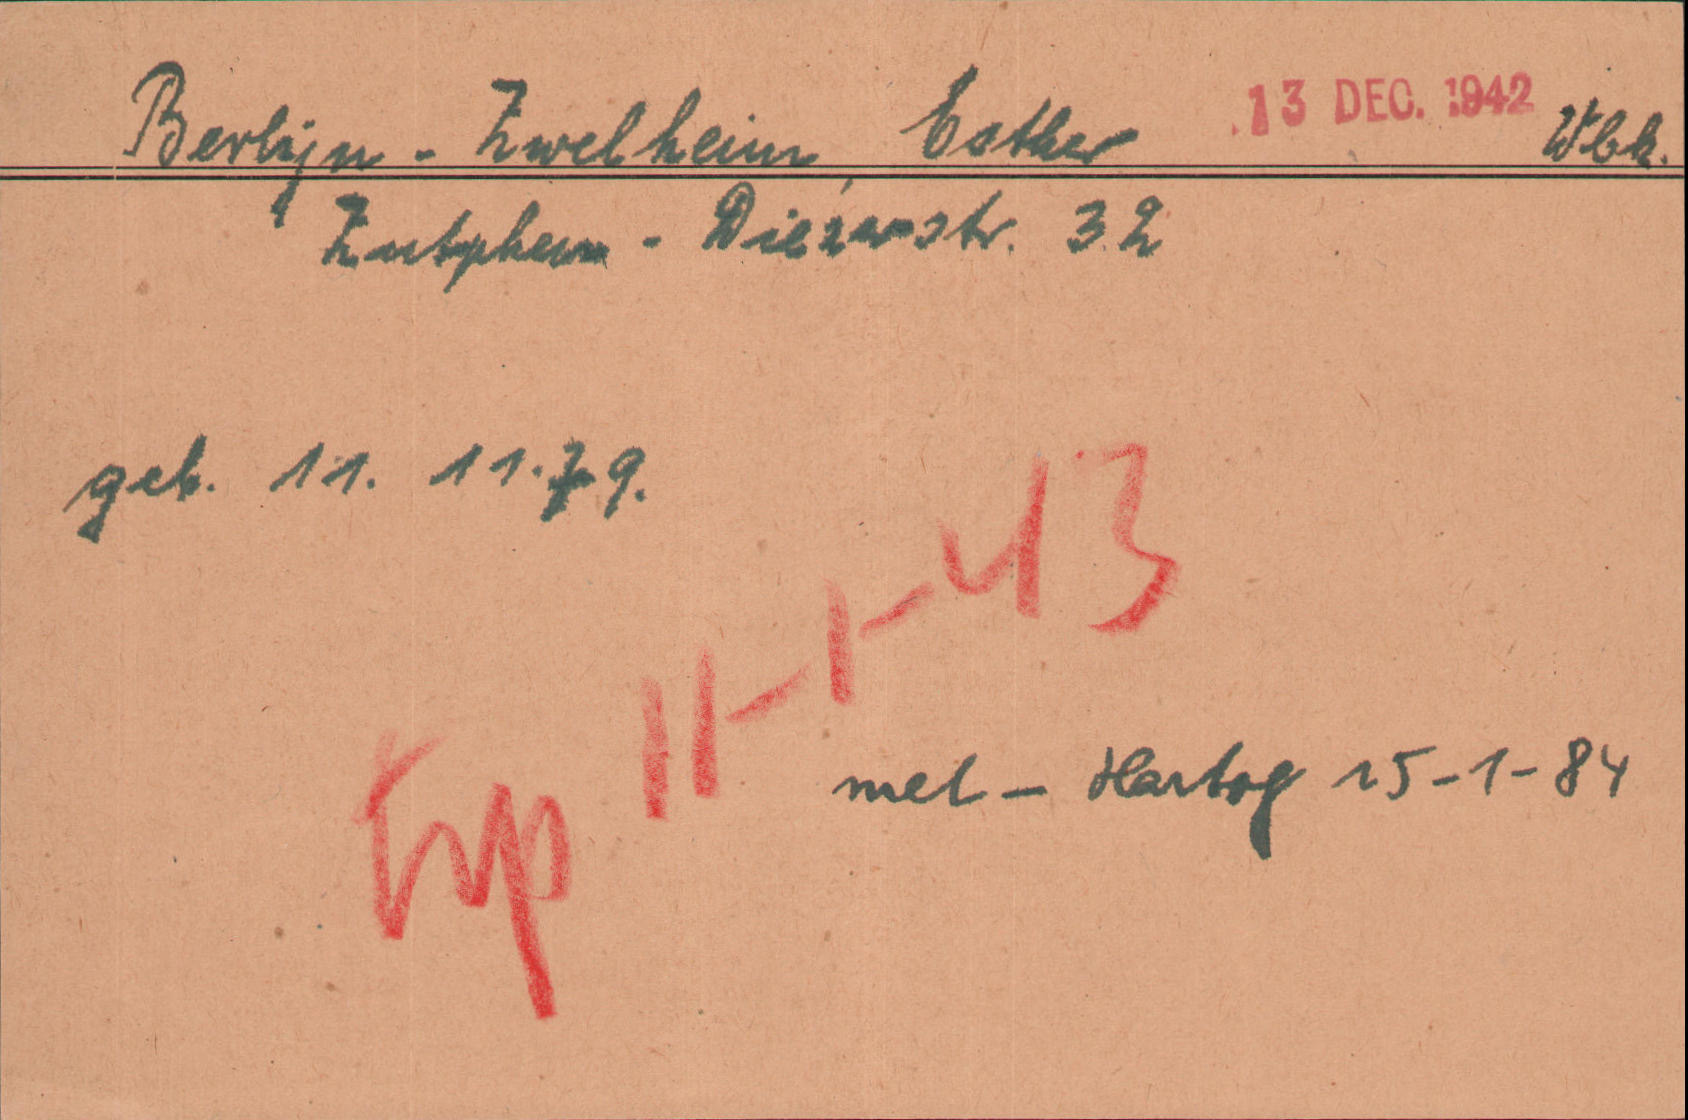 Berlijn - Zwelheim, Esther 13 DEC. 1942 Wbk.
Zutphen - Diezerstr. 32
geb. 11. 11. 79.
Trp 11-1-43
met - Hartog 15-1-84